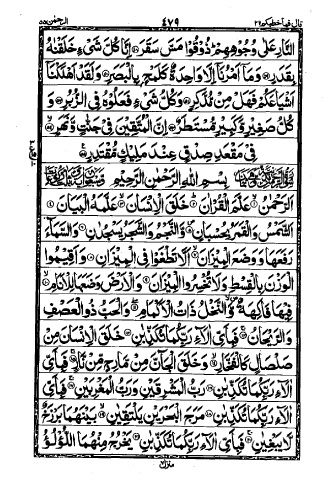 قال فما خطبكم ٢٧ ٤٧٩ الرحمٰن ٥٥
النَّارِ عَلٰى وُجُوْهِهِمْ ذُوْقُوْا مَسَّ سَقَرَ اِنَّا كُلَّ شَيْءٍ خَلَقْنٰهُ
بِقَدَرٍ وَمَآ اَمْرُنَآ اِلَّا وَاحِدَةٌ كَلَمْحٍ بِالْبَصَرِ وَلَقَدْ اَهْلَكْنَآ
اَشْيَاعَكُمْ فَهَلْ مِنْ مُّدَّكِرٍ وَكُلُّ شَيْءٍ فَعَلُوْهُ فِى الزُّبُرِ وَ
كُلُّ صَغِيْرٍ وَّكَبِيْرٍ مُّسْتَطَرٌ اِنَّ الْمُتَّقِيْنَ فِيْ جَنّٰتٍ وَّنَهَرٍ
فِيْ مَقْعَدِ صِدْقٍ عِنْدَ مَلِيْكٍ مُّقْتَدِرٍ
بِسْمِ اللهِ الرَّحْمٰنِ الرَّحِيْمِ
اَلرَّحْمٰنُ عَلَّمَ الْقُرْاٰنَ خَلَقَ الْاِنْسَانَ عَلَّمَهُ الْبَيَانَ
اَلشَّمْسُ وَالْقَمَرُ بِحُسْبَانٍ وَّالنَّجْمُ وَالشَّجَرُ يَسْجُدٰنِ وَالسَّمَآءَ
رَفَعَهَا وَوَضَعَ الْمِيْزَانَ اَلَّا تَطْغَوْا فِى الْمِيْزَانِ وَاَقِيْمُوا
الْوَزْنَ بِالْقِسْطِ وَلَا تُخْسِرُوا الْمِيْزَانَ وَالْاَرْضَ وَضَعَهَا لِلْاَنَامِ
فِيْهَا فَاكِهَةٌ وَّالنَّخْلُ ذَاتُ الْاَكْمَامِ وَالْحَبُّ ذُو الْعَصْفِ
وَالرَّيْحَانُ فَبِاَيِّ اٰلَآءِ رَبِّكُمَا تُكَذِّبٰنِ خَلَقَ الْاِنْسَانَ مِنْ
صَلْصَالٍ كَالْفَخَّارِ وَخَلَقَ الْجَآنَّ مِنْ مَّارِجٍ مِّنْ نَّارٍ فَبِاَيِّ
اٰلَآءِ رَبِّكُمَا تُكَذِّبٰنِ رَبُّ الْمَشْرِقَيْنِ وَرَبُّ الْمَغْرِبَيْنِ فَبِاَيِّ
اٰلَآءِ رَبِّكُمَا تُكَذِّبٰنِ مَرَجَ الْبَحْرَيْنِ يَلْتَقِيٰنِ بَيْنَهُمَا بَرْزَخٌ
لَّا يَبْغِيٰنِ فَبِاَيِّ اٰلَآءِ رَبِّكُمَا تُكَذِّبٰنِ يَخْرُجُ مِنْهُمَا اللُّؤْلُؤُ
منزل